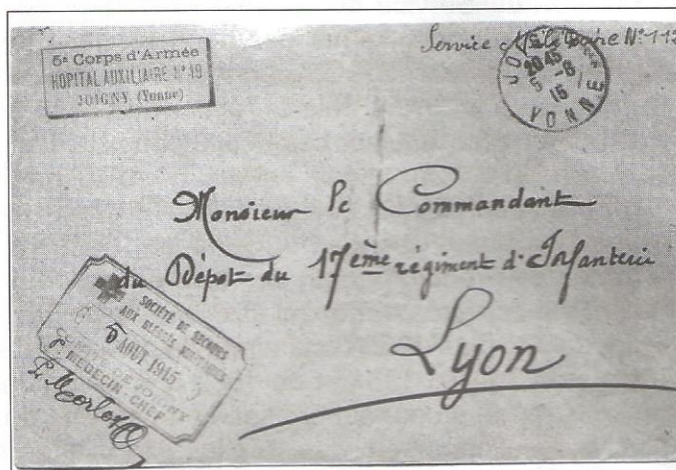 5e Corps d'Armée
HOPITAL AUXILIAIRE N°19
JOIGNY. (Yonne)
Service Militaire N° 112
JOIGNY
20 45
5 -8
15
YONNE
Monsieur le Commandant
du Dépot du 17ème régiment d'Infanterie
Lyon
SOCIÉTÉ DE SECOURS
AUX BLESSÉS MILITAIRES
5 AOUT 1915
DE JOIGNY
MEDECIN CHEF